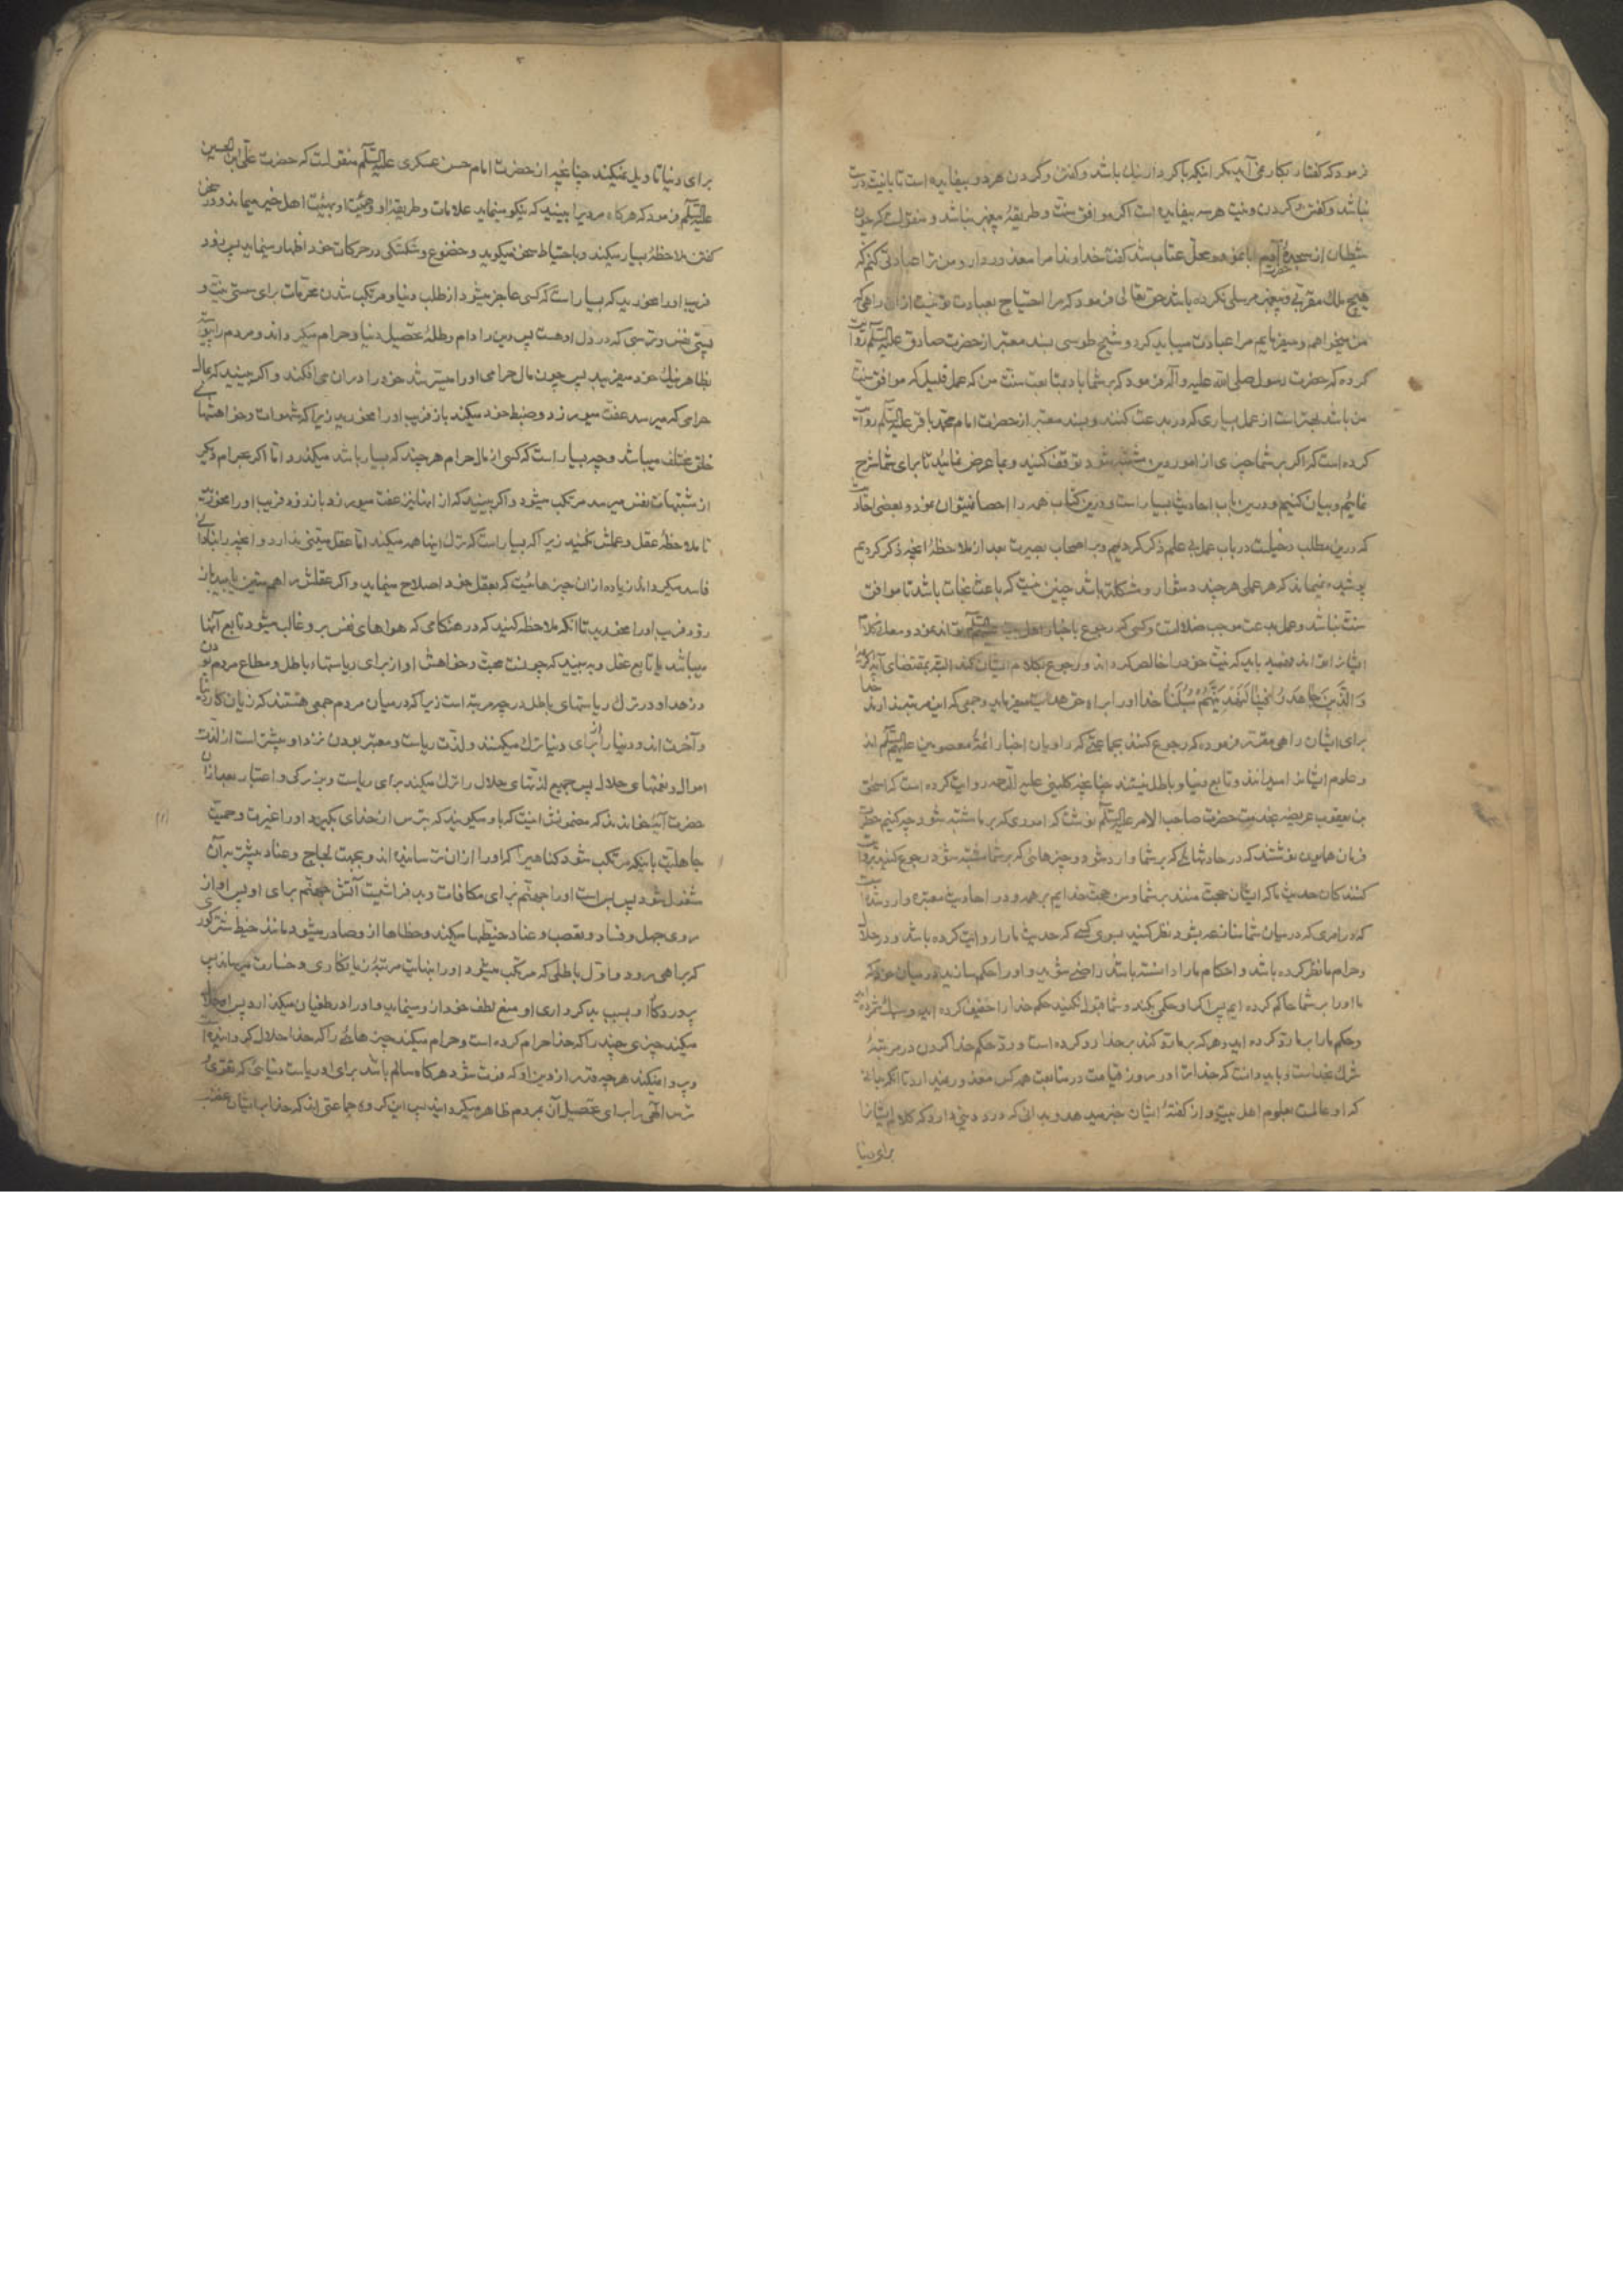 فرمود که گفتار بکار نمی آید مگر اینکه با کردار نیک باشد و گفتن و کردن هر دو بیفایده است تا با نیت درست
نباشد و گفتن و کردن و نیت هر سه بیفایده است اگر موافق سنت و طریقهٔ پیغمبر نباشد و منقولست که چون
شیطان از سجدهٔ آدم ابا نمود و محل عتاب شد گفت خداوندا مرا معذور دار و من ترا عبادتی کنم که
هیچ ملک مقربی و پیغمبر مرسلی نکرده باشد حق تعالی فرمود که مرا احتیاج بعبادت تو نیست از آن راهی که
من میخواهم و میفرمایم مرا عبادت میباید کرد و شیخ طوسی بسند معتبر از حضرت صادق علیه السلم روایت
کرده که حضرت رسول صلی الله علیه و آله فرمود که بر شما باد بمتابعت سنت من که عمل قلیل که موافق سنت
من باشد بهتر است از عمل بسیاری که در بدعت کنند و بسند معتبر از حضرت امام محمد باقر علیه السلم روایت
کرده است که اگر بر شما چیزی از امور دین مشتبه شود توقف کنید و بما عرض نمائید تا برای شما شرح
نمائیم و بیان کنیم و درین باب احادیث بسیار است و درین کتاب همه را احصا نمیتوان نمود و بعضی احادیث
که درین مطلب دخیلست در باب عمل بی علم ذکر کردیم و بر اصحاب بصیرت بعد از ملاحظهٔ آنچه ذکر کردیم
پوشیده نمیماند که هر عملی هرچند دشوار و مشکلتر باشد چنین نیست که باعث نجات باشد تا موافق
سنت نباشد و عمل بدعت موجب ضلالت است و کسی که رجوع باخبار اهل بیت علیهم السلم تواند نمود و معنی کلام
ایشانرا تواند فهمید باید که نیت خود را خالص گرداند و رجوع بکلام ایشان کند البته بمقتضای آیه کریمه
وَالَّذینَ جاهَدوا فینا لَنَهْدِیَنَّهُمْ سُبُلَنا خدا او را براه حق هدایت میفرماید و جمعی که این مرتبه ندارند خدا
برای ایشان راهی مقرر فرموده که رجوع کنند بجماعتی که راویان اخبار ائمهٔ معصومین علیهم السلم اند
و علوم ایشانرا میدانند و تابع دنیا و باطل نیستند چنانچه کلینی علیه الرحمه روایت کرده است که اسحق
بن یعقوب عریضه بخدمت حضرت صاحب الامر علیه السلم نوشت که اموری که بر ما مشتبه شود چه کنیم حضرت
فرمان همایون نوشتند که در حادثهائی که بر شما وارد شود و چیزهائی که بر شما مشتبه شود رجوع کنید بروایت
کنندکان حدیث ما که ایشان حجت منند بر شما و من حجت خدایم بر همه و در احادیث معتبره وارد شده است
که در امری که در میان شما منازعه بشود نظر کنید بسوی کسی که حدیث ما را روایت کرده باشد و در حلال
و حرام ما نظر کرده باشد و احکام ما را دانسته باشد راضی شوید و او را حکم سازید در میان خود که
ما او را بر شما حاکم کرده ایم پس اگر او حکمی بکند و شما قبول نکنید حکم خدا را خفیف کرده اید و سبک شمرده اید
و حکم ما را بر ما رد کرده اید و هر که بر ما رد کند بر خدا رد کرده است و رد حکم خدا کردن در مرتبهٔ
شرک بخداست و باید دانست که خدا ترا در روز قیامت در متابعت همه کس معذور نمیدارد تا آنکه بدانی
که او عالمست بعلوم اهل بیت و از گفتهٔ ایشان خبر میدهد و بدانی که درد دینی دارد که کلام ایشانرا
برای دنیا
برای دنیا تاویل نمیکند چنانچه از حضرت امام حسن عسکری علیه السلم منقولست که حضرت علی ابن الحسین
علیه السلم فرمود که هرگاه مردیرا ببینید که نیکو مینماید علامات و طریقهٔ او و هیئت او بهیئت اهل خیر میماند و در سخن
گفتن ملاحظهٔ بسیار میکند و باحتیاط سخن میگوید و خضوع و شکستگی در حرکات خود اظهار مینماید پس زود
فریب او را مخورید که بسیار است که کسی عاجز میشود از طلب دنیا و مرتکب شدن محرمات برای سستی نیت و
پستی نفس و ترسی که در دل او هست پس دین را دام و طلهٔ تحصیل دنیا و حرام میگرداند و مردم را پیوسته
بظاهر نیک خود میفریبد پس چون مال حرامی او را میسر شد خود را در آن می افکند و اگر ببینید که بمال
حرامی که میرسد عفت میورزد و ضبط خود میکند باز فریب او را مخورید زیرا که شهوات و خواهشهای
خلق مختلف میباشد و چه بسیار است که کسی از مال حرام هرچند که بسیار باشد میگذرد و اما اگر بحرام دیگر
از مشتهیات نفس میرسد مرتکب میشود و اگر ببینید که از اینها نیز عفت میورزد باز زود فریب او را مخورید
تا ملاحظهٔ عقل و عملش نکنید زیرا که بسیار است که ترک اینها همه میکند اما عقل متینی ندارد و آنچه را بنادانی
فاسد میگرداند زیاده از آن چیزهاست که بعقل خود اصلاح مینماید و اگر عقلش را هم متین یابید باز
زود فریب او را مخورید تا آنکه ملاحظه کنید که در هنگامی که هواهای نفس برو غالب میشود تابع آنها
میباشد یا تابع عقل و به بینید که چونست محبت و خواهش او از برای ریاستهاء باطل و مطاع مردم بودن
و زهد او در ترک ریاستهای باطل در چه مرتبه است زیرا که در میان مردم جمعی هستند که زیان کار دنیا
و آخرت اند و دنیا را از برای دنیا ترک میکنند و لذت ریاست و معتبر بودن نزد او بیشتر است از لذت
اموال و نعمتهای حلال پس جمیع لذتهای حلال را ترک میکند برای ریاست و بزرگی و اعتبار بعد از آن
حضرت آیهٔ خواندند که مضمونش اینست که باو میگویند که بترس از خدای بگیرد او را غیرت و حمیت
جاهلیت باینکه مرتکب شود گناهیرا که او را از آن ترسانیده اند و بجهت لجاج و عناد بیشتر بآن
مشغول شود پس بس است او را جهنم برای مکافات و بد فراشیست آتش جهنم برای او پس او از
روی جهل و فساد و تعصب و عناد خبطها میکند و خطاها از و صادر میشود مانند خبط شتر کوری
که براهی رود و اول باطلی که مرتکب میشود او را بنهایت مرتبهٔ زیانکاری و خسارت میرساند پس
پروردکار او بسبب بد کرداری او منع لطف خود از و مینماید و او را در طغیان میگذارد پس او حلال
میکند چیزی چند را که خدا حرام کرده است و حرام میکند چیزهائی را که خدا حلال گردانیده است
و پروا نمیکند هرچه قدر از دین او که فوت شود هرگاه سالم باشد برای او ریاست دنیائی که تقوی و
ترس الهی را برای تحصیل آن بمردم ظاهر میگرداند پس این کروه جماعتی اند که خدا بر ایشان غضب